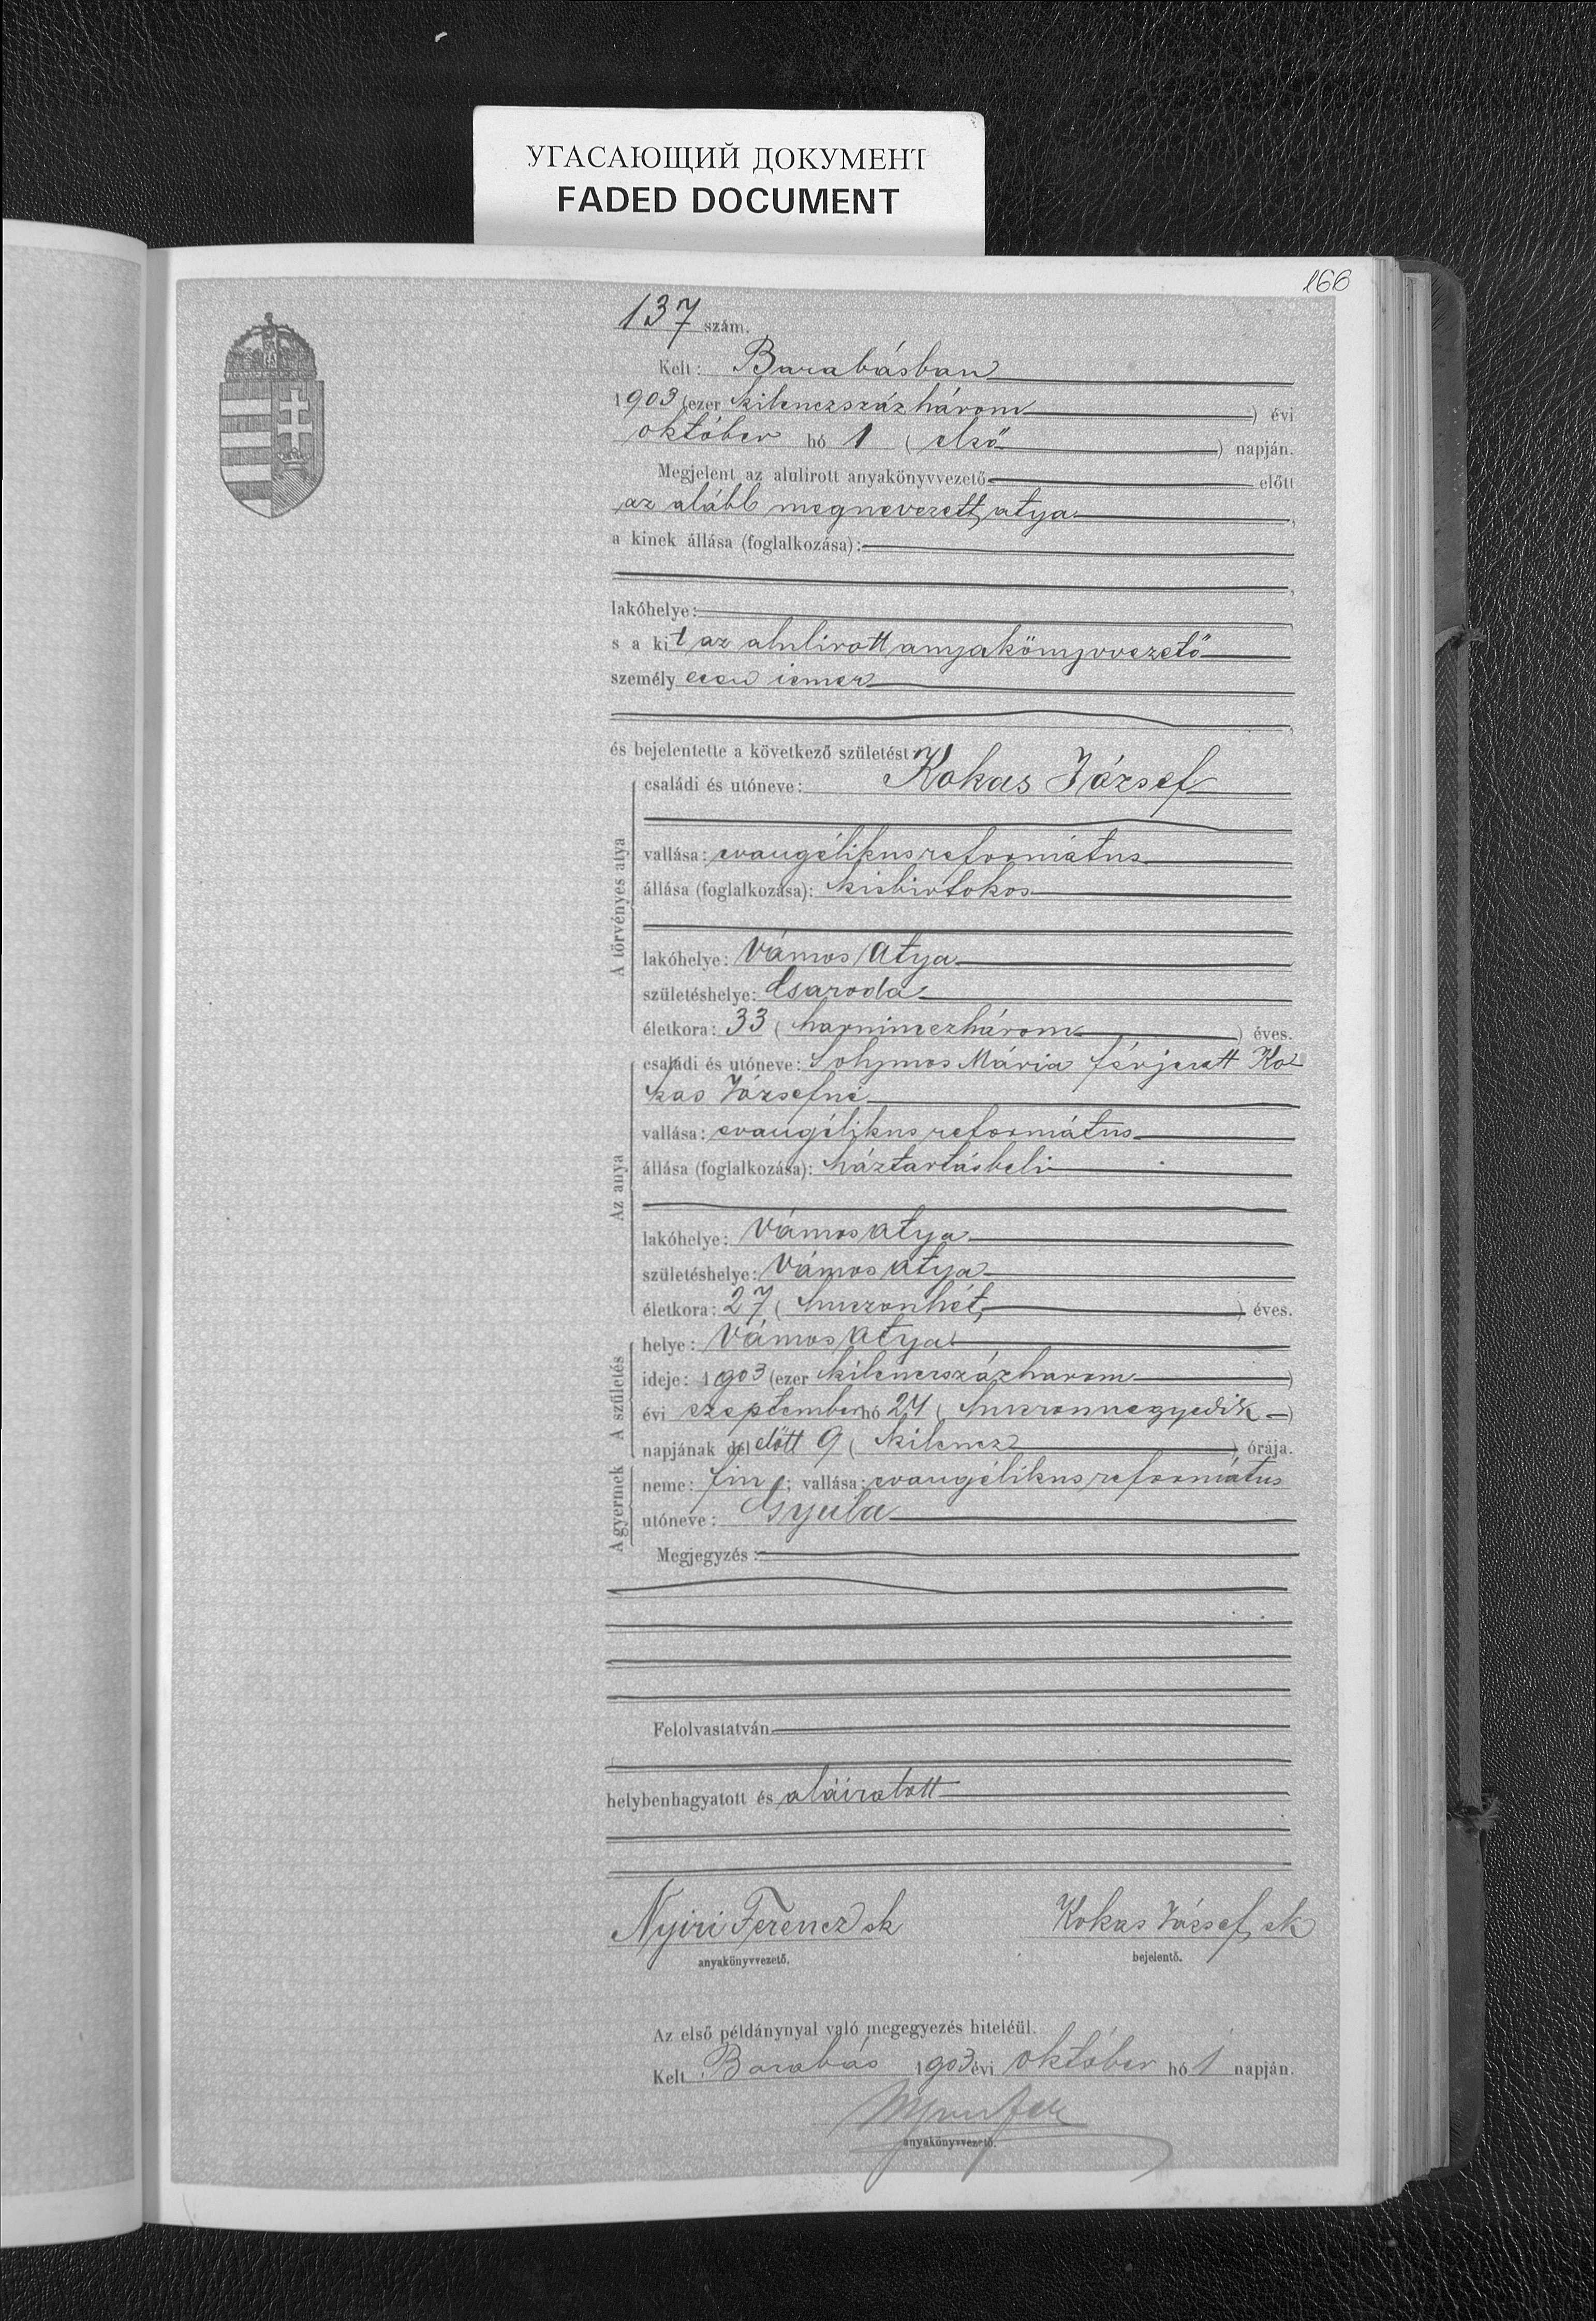 УГАСАЮЩИЙ ДОКУМЕНТ
FADED DOCUMENT
166
137 szám.
Kelt: Barabásban
1903 (ezer kilenczszázhárom) évi
október hó 1 (első) napján.
Megjelent az alulirott anyakönyvvezető előtt
az alább megnevezett atya,
a kinek állása (foglalkozása):
lakóhelye:
s a kit az alulirott anyakönyvvezető
személyesen ismer
és bejelentette a következő születést:
A törvényes atya
családi és utóneve: Kokas József
vallása: evangélikus református
állása (foglalkozása): kisbirtokos
lakóhelye: Vámos Atya
születéshelye: Csaroda
életkora: 33 (harminczhárom) éves.
Az anya
családi és utóneve: Solymos Mária férjezett Ko
kas Józsefné
vallása: evangélikus református
állása (foglalkozása): háztartásbeli
lakóhelye: Vámos Atya
születéshelye: Vámos Atya
életkora: 27 (huszonhét) éves.
A születés
helye: Vámos Atya
ideje: 1903 (ezer kilenczszázhárom)
évi szeptember hó 24 (huszonnegyedik)
napjának dél előtt 9 (kilencz) órája.
A gyermek
neme: fiu; vallása: evangélikus református
utóneve: Gyula
Megjegyzés:
Felolvastatván
helybenhagyatott és aláiratott
Nyiri Ferencz sk Kokas József sk
anyakönyvvezető. bejelentő.
Az első példánynyal való megegyezés hiteléül.
Kelt Barabás 1903 évi október hó 1 napján.
anyakönyvvezető.